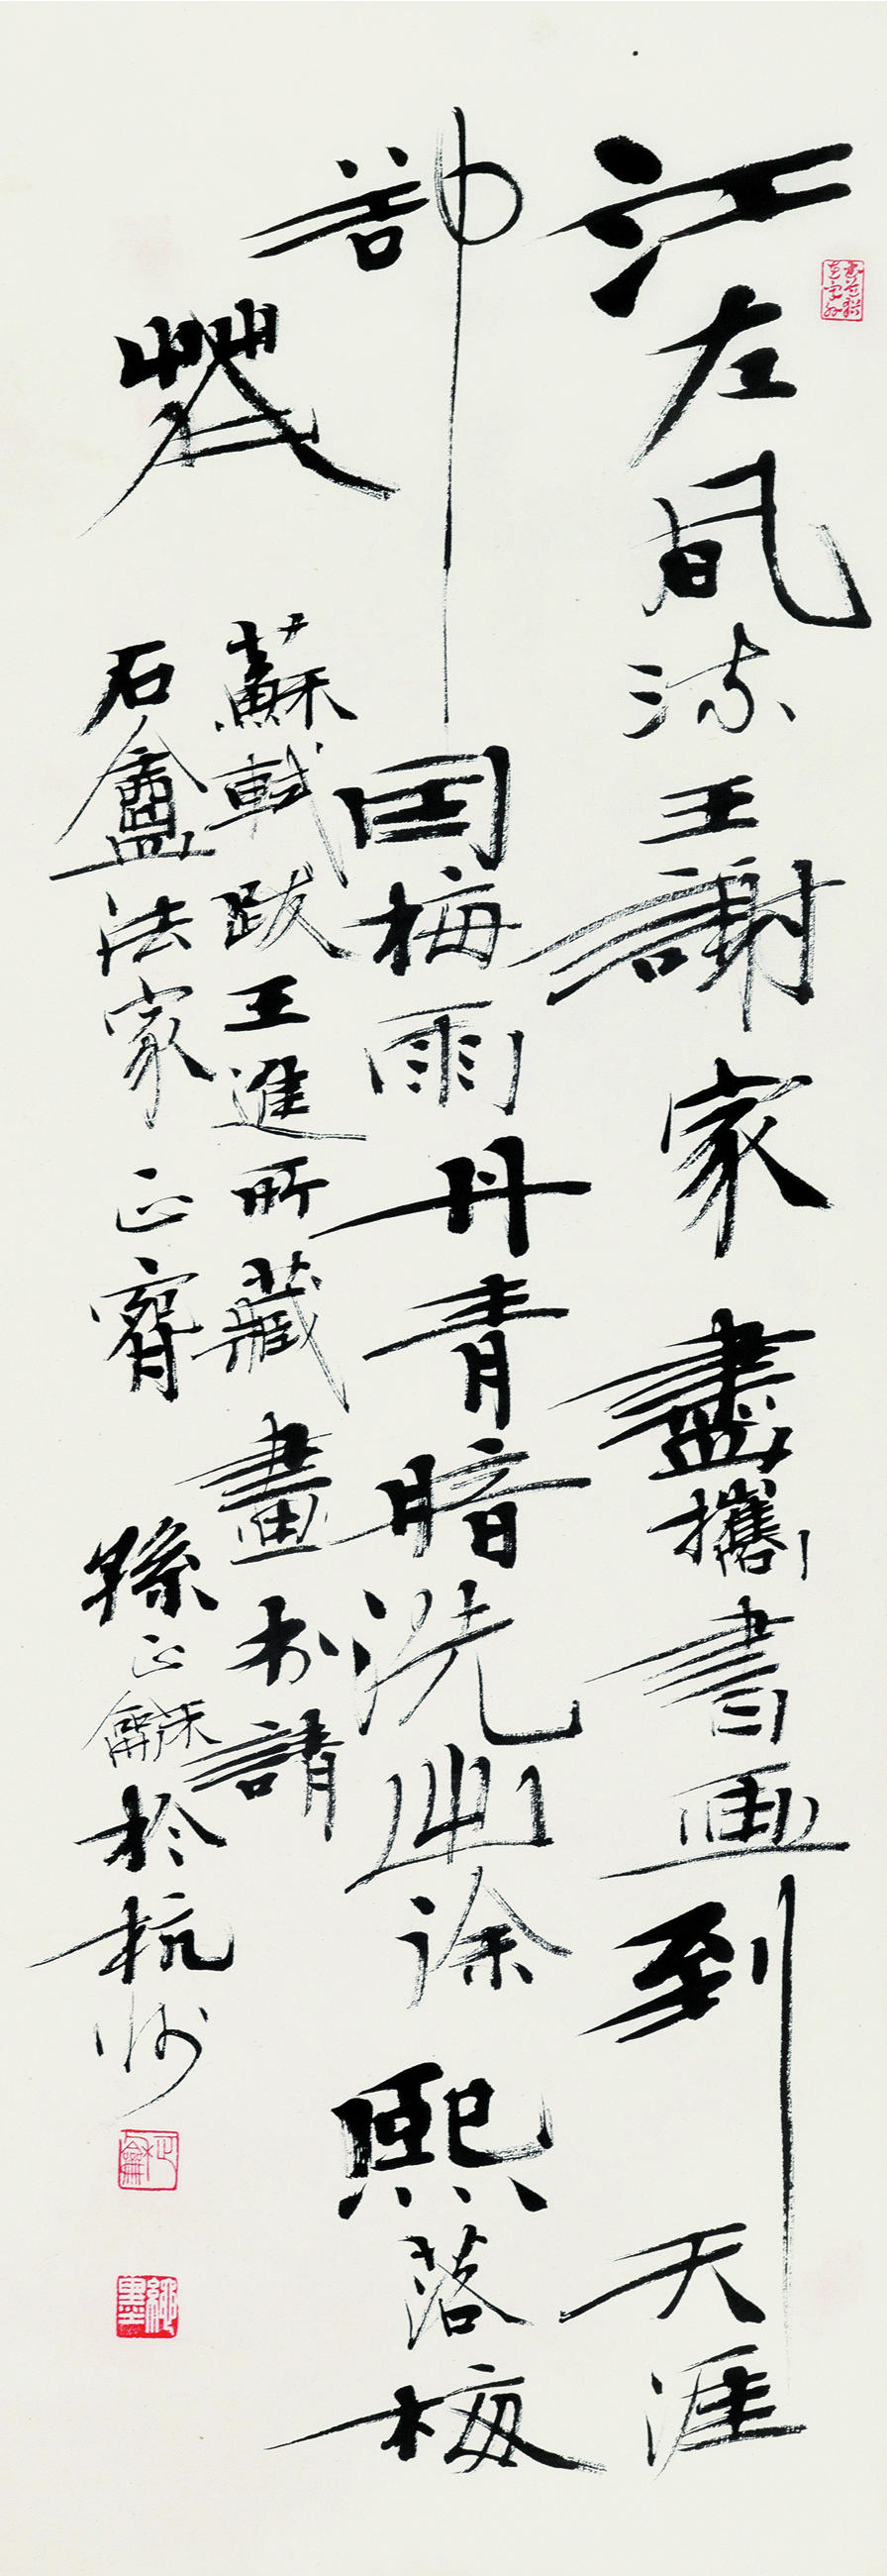 江左風流王謝家盡攜書画到天涯
卻因梅雨丹青暗洗出徐熙落梅
花
蘇軾跋王進所藏畫叔請
石盦法家正 孫正龢於杭州
正龢
繩墨